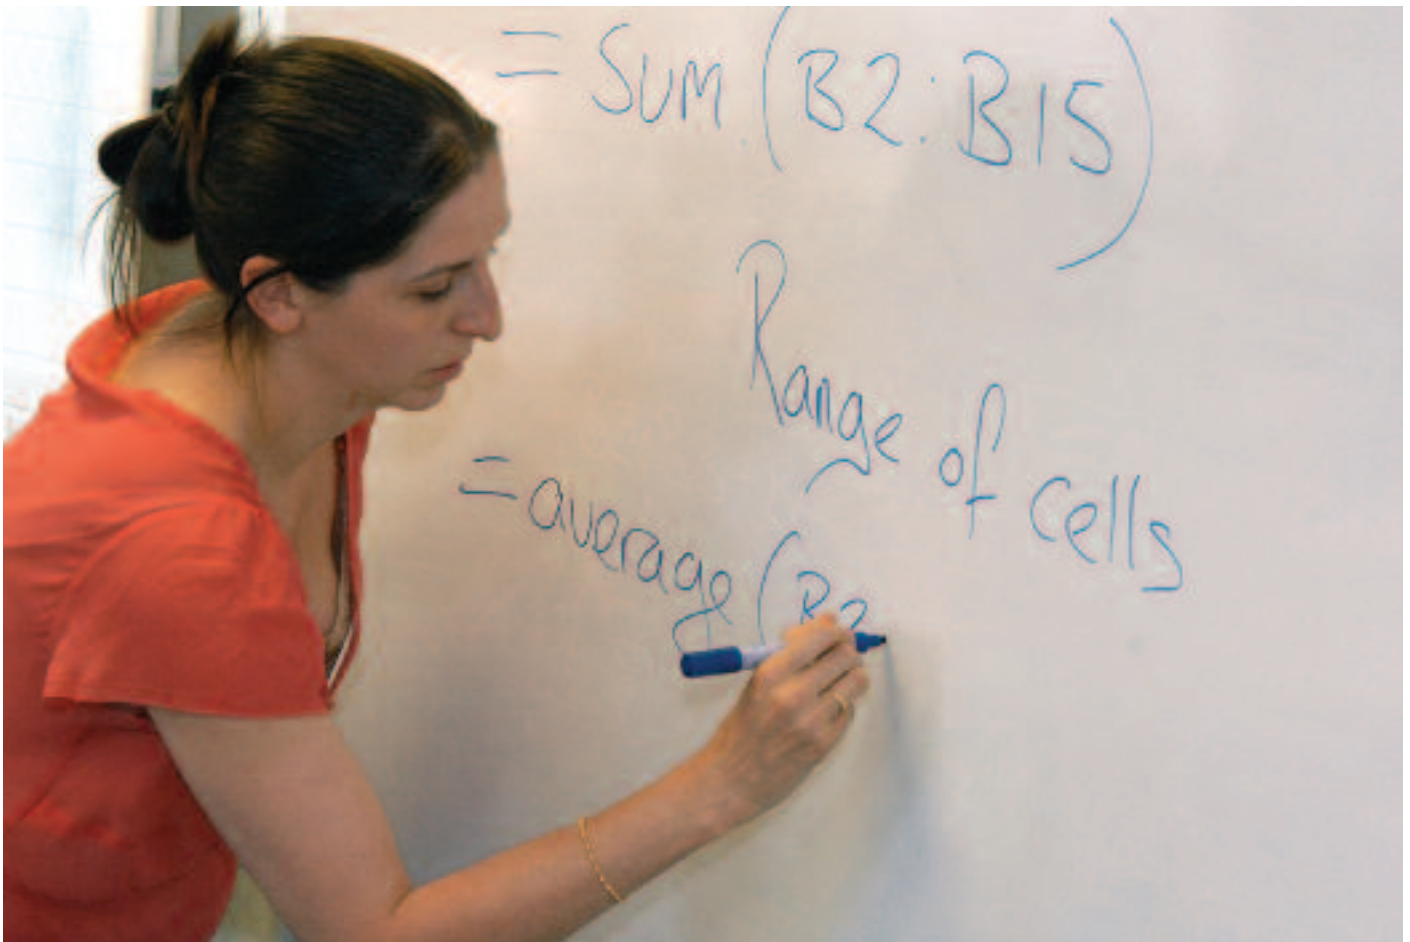 = SUM (B2:B15)
Range of cells
= average (B2